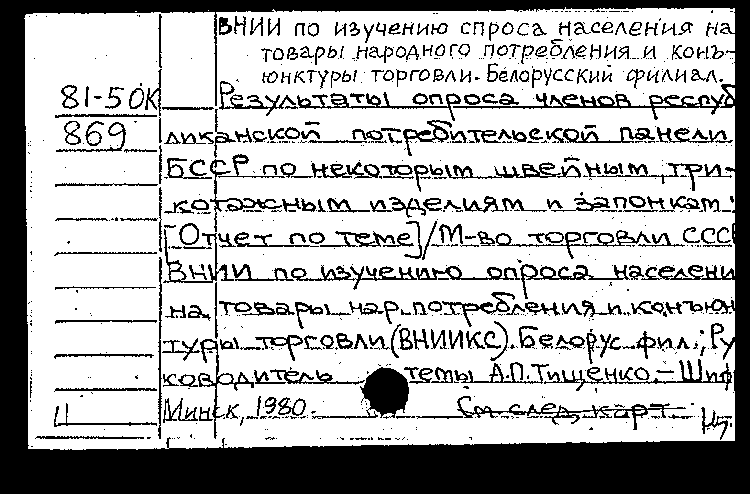 ВНИИ по изучению спроса населения на
товары народного потребления и конъ-
юнктуры торговли. Белорусский филиал.
81-5 ОК Результаты опроса членов респуб
869 ликанской потребительской панели
БССР по некоторым швейным, три-
котажным изделиям и запонкам
[Отчет по теме]/М-во торговли СССР
ВНИИ по изучению опроса населени
на товары нар. потребления и конъюн
туры торговли (ВНИИКС). Белорус. фил.; Ру
ководитель темы А.П. Тищенко. – Шиф
Минск, 1980. См. след. карт.